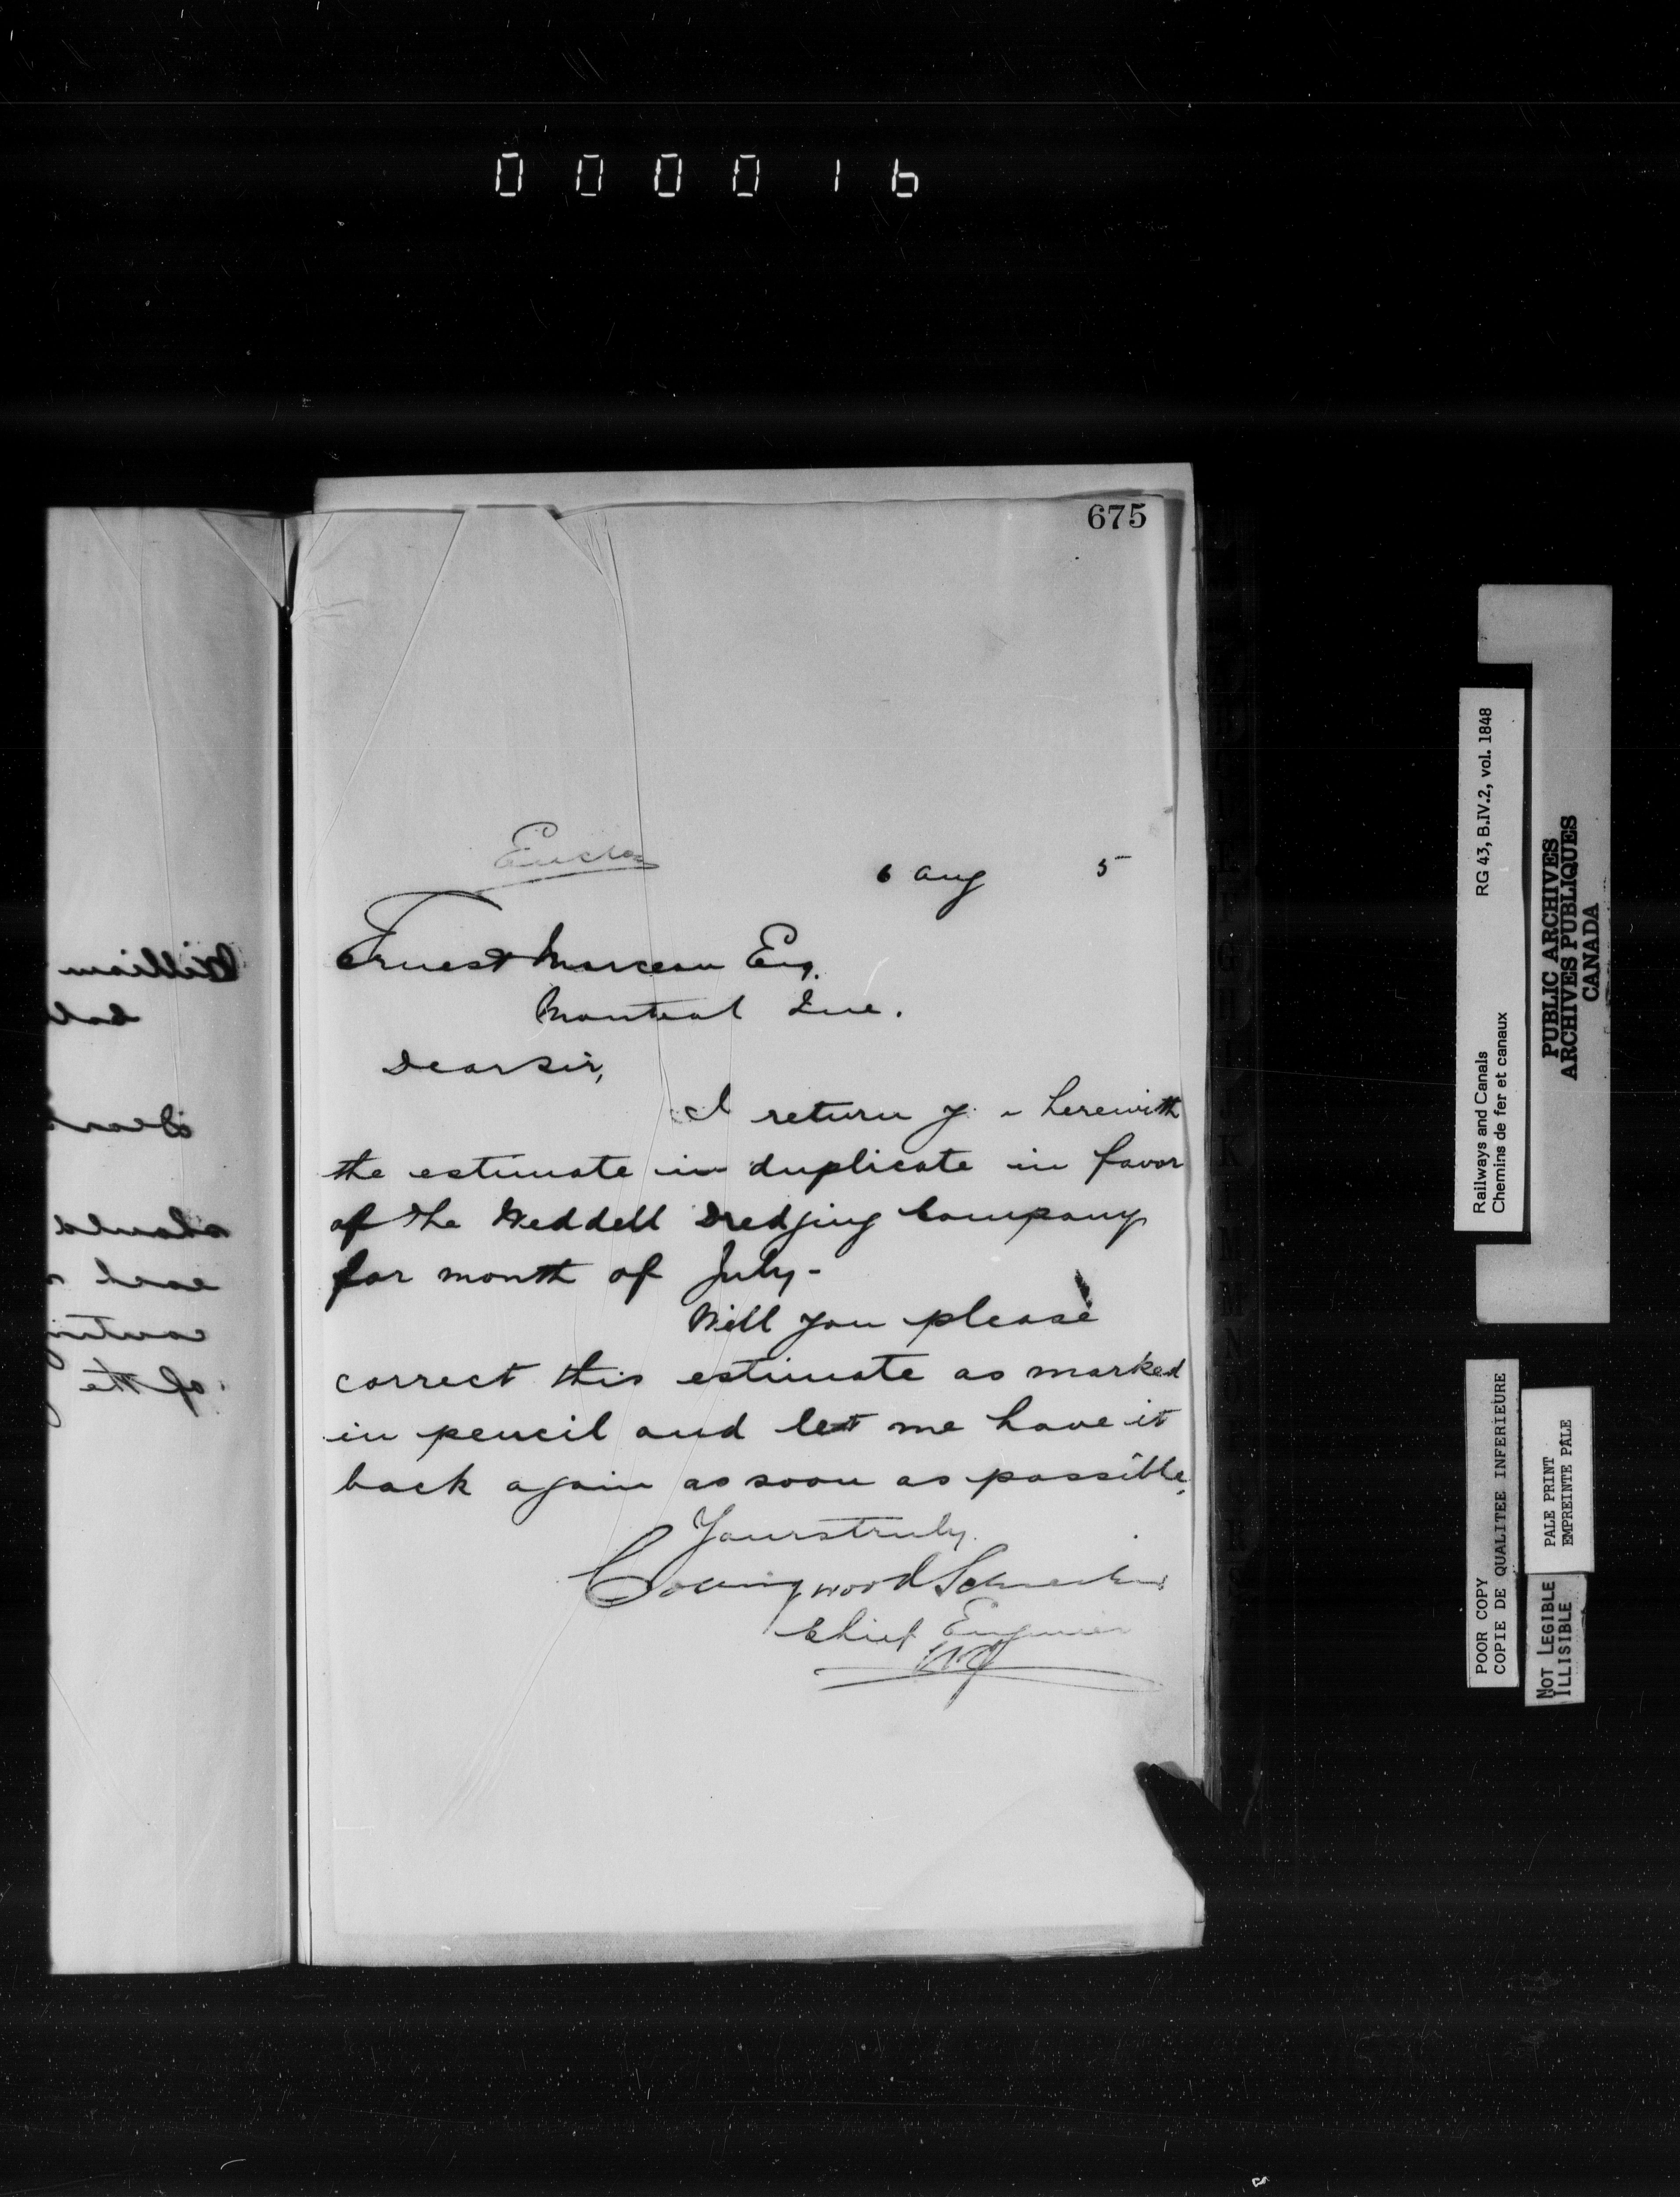 000016
675
Enclos
6 Aug 5
Ernest Marceau Esq.
Montreal Que.
Dear Sir,
I return y herewith
the estimate in duplicate in favor
of the Weddell Dredging Company
for month of July-
Will you please
correct this estimate as marked
in pencil and let me have it
back again as soon as possible.
Yours truly.
Collingwood Schreiber
Chief Engineer
William
Dear
should
of the
Railways and Canals RG 43, B.IV.2, vol. 1848
Chemins de fer et canaux
PUBLIC ARCHIVES
ARCHIVES PUBLIQUES
CANADA
POOR COPY
COPIE DE QUALITEE INFERIEURE
PALE PRINT
EMPREINTE PÂLE
NOT LEGIBLE
ILLISIBLE